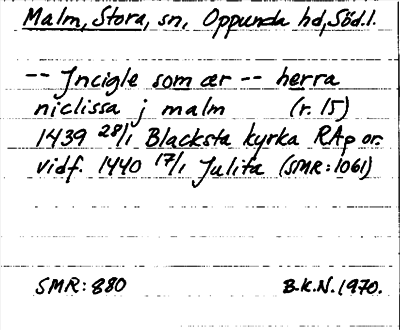 Malm, Stora, sn, Oppunda hd, Söd.l.
-- Jncigle som ær -- herra
niclissa j malm (r. 15)
1439 28/1 Blacksta kyrka RAp or.
vidf. 1440 17/1 Julita (SMR: 1061)
SMR: 880 B.K.N. 1970.